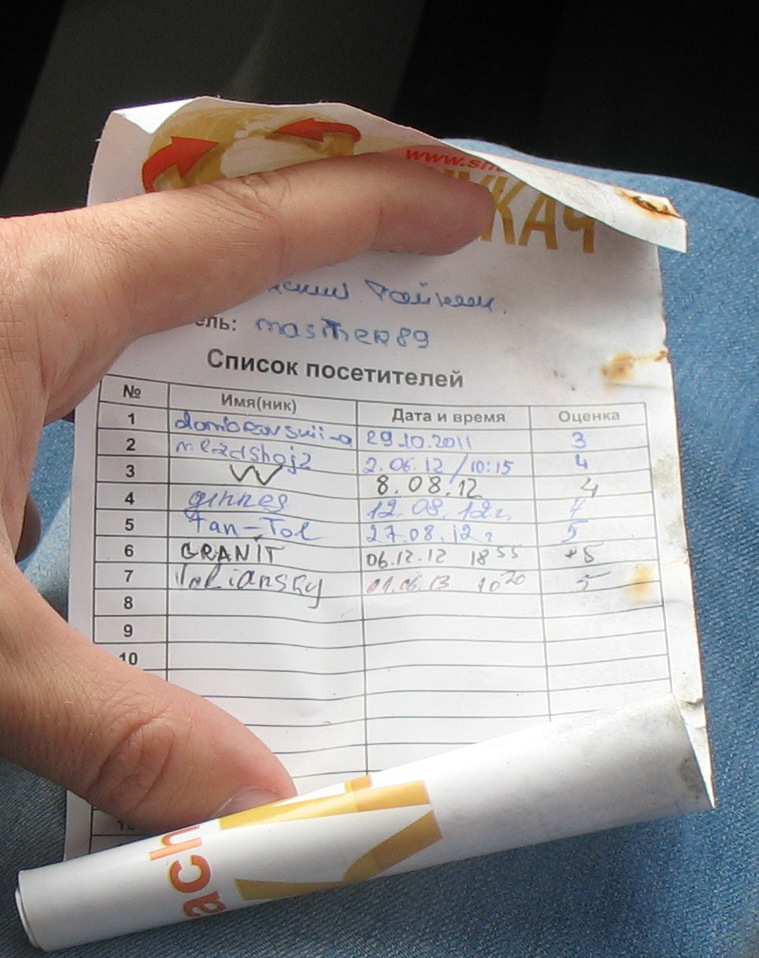 www.sh
УКАЧ
ель: master89
Список посетителей
№ Имя(ник) Дата и время Оценка
1 dombrovskii-a 29.10.2011 3
2 2.06.12 / 10:15 4
3 W 8.08.12 4
4 ginnes 12.08.12г. 4
5 Tan-Tol 27.08.12г 5
6 GRANIT 06.12.12 18 55 +5
7 Veliansky 01.06.13 10 20 5
8
9
10
ach